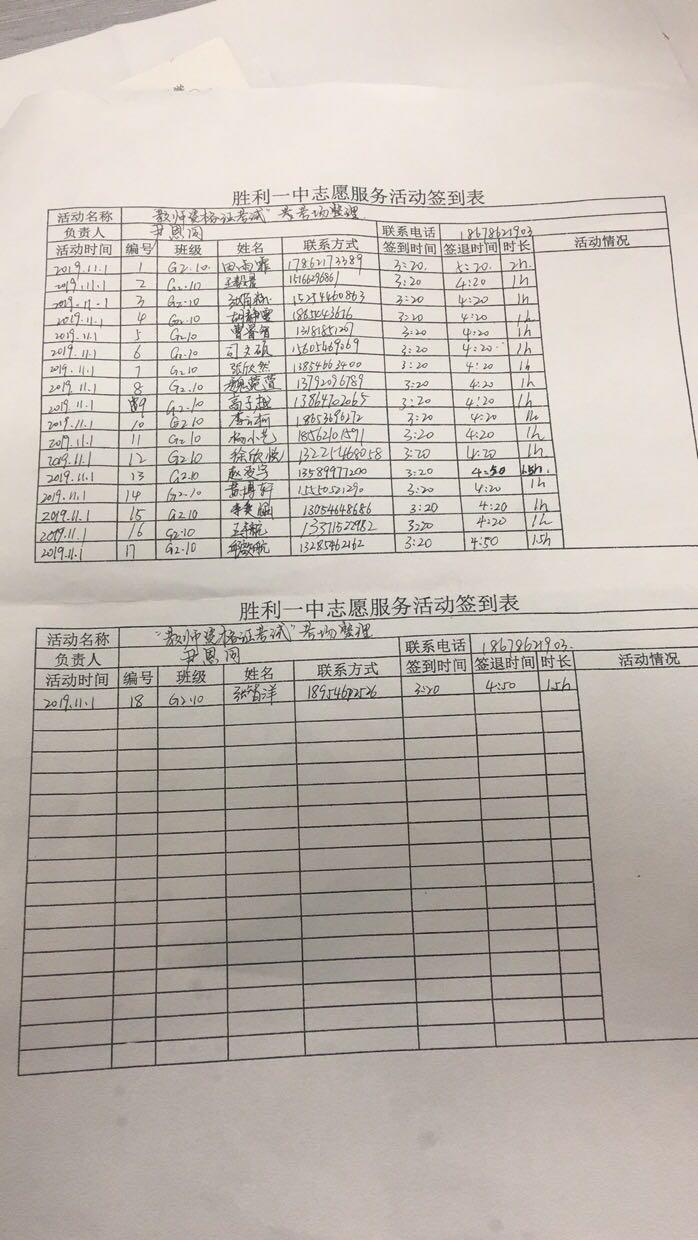 胜利一中志愿服务活动签到表
活动名称 "教师资格证考试"考场整理
负责人 尹恩阁 联系电话 18678621903
活动时间 编号 班级 姓名 联系方式 签到时间 签退时间 时长 活动情况
2019.11.1 1 G2.10 田雨霏 17862173389 3:20 5:20 2h
2019.11.1 2 G2.10 3:20 4:20 1h
2019.11.1 3 G2.10 15254660863 3:20 4:20 1h
2019.11.1 4 G2.10 胡静雯 3:20 4:20 1h
2019.11.1 5 G2.10 3:20 4:20 1h
2019.11.1 6 G2.10 15605469069 3:20 4:20 1h
2019.11.1 7 G2.10 张欣然 13854663400 3:20 4:20 1h
2019.11.1 8 G2.10 13792096789 3:20 4:20 1h
2019.11.1 9 G2.10 高子越 13864702065 3:20 4:20 1h
2019.11.1 10 G2.10 18653696272 3:20 4:20 1h
2019.11.1 11 G2.10 18562101571 3:20 4:20 1h
2019.11.1 12 G2.10 徐欣悦 3:20 4:20 1h
2019.11.1 13 G2.10 13589977200 3:20 4:50 1.5h
2019.11.1 14 G2.10 黄博轩 15550521290 3:20 4:20 1h
2019.11.1 15 G2.10 13054648686 3:20 4:20 1h
2019.11.1 16 G2.10 13371522982 3:20 4:20 1h
2019.11.1 17 G2.10 13285462162 3:20 4:50 1.5h
胜利一中志愿服务活动签到表
活动名称 "教师资格证考试"考场整理
负责人 尹恩阁 联系电话 18678621903
活动时间 编号 班级 姓名 联系方式 签到时间 签退时间 时长 活动情况
2019.11.1 18 G2.10 张智洋 3:20 4:50 1.5h